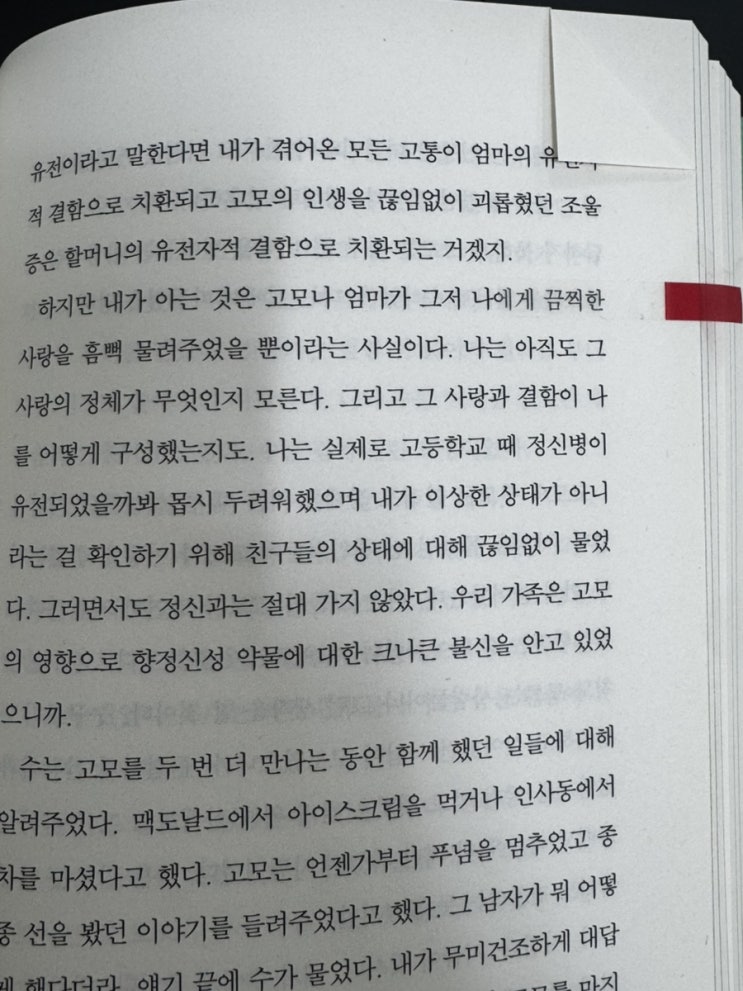 유전이라고 말한다면 내가 겪어온 모든 고통이 엄마의
적 결함으로 치환되고 고모의 인생을 끊임없이 괴롭혔던 조울
증은 할머니의 유전자적 결함으로 치환되는 거겠지.
하지만 내가 아는 것은 고모나 엄마가 그저 나에게 끔찍한
사랑을 흠뻑 물려주었을 뿐이라는 사실이다. 나는 아직도 그
사랑의 정체가 무엇인지 모른다. 그리고 그 사랑과 결함이 나
를 어떻게 구성했는지도. 나는 실제로 고등학교 때 정신병이
유전되었을까봐 몹시 두려워했으며 내가 이상한 상태가 아니
라는 걸 확인하기 위해 친구들의 상태에 대해 끊임없이 물었
다. 그러면서도 정신과는 절대 가지 않았다. 우리 가족은 고모
의 영향으로 향정신성 약물에 대한 크나큰 불신을 안고 있었
으니까.
수는 고모를 두 번 더 만나는 동안 함께 했던 일들에 대해
알려주었다. 맥도날드에서 아이스크림을 먹거나 인사동에서
차를 마셨다고 했다. 고모는 언젠가부터 푸념을 멈추었고 종
종 선을 봤던 이야기를 들려주었다고 했다. 그 남자가 뭐 어떻
게 했다더라, 얘기 끝에 수가 물었다. 내가 무미건조하게 대답